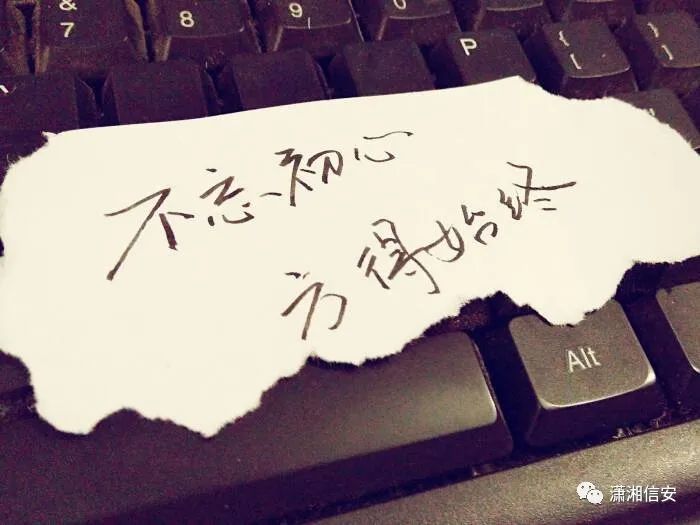 & 7
* 8
( 9
) 0
P
{ [
} ]
不忘初心
方得始终
Alt
潇湘信安